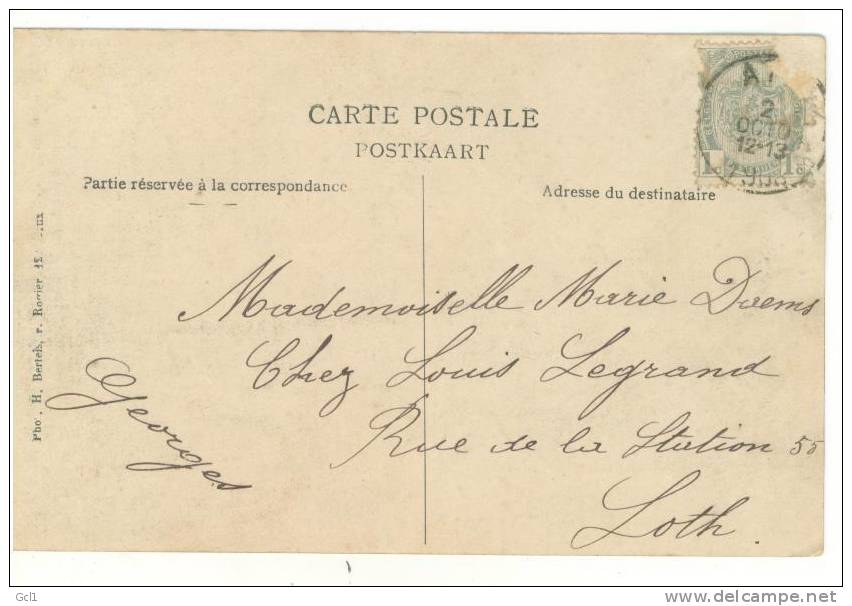 CARTE POSTALE
POSTKAART
Partie réservée à la correspondance
Adresse du destinataire
2
OCTO
12-13
1 1
Mademoiselle Marie Daems
Chez Louis Legrand
Rue de la Station 55
Loth.
Georges
Phot. H. Bertels, r. Rogier
Gcl1
delcampe.net